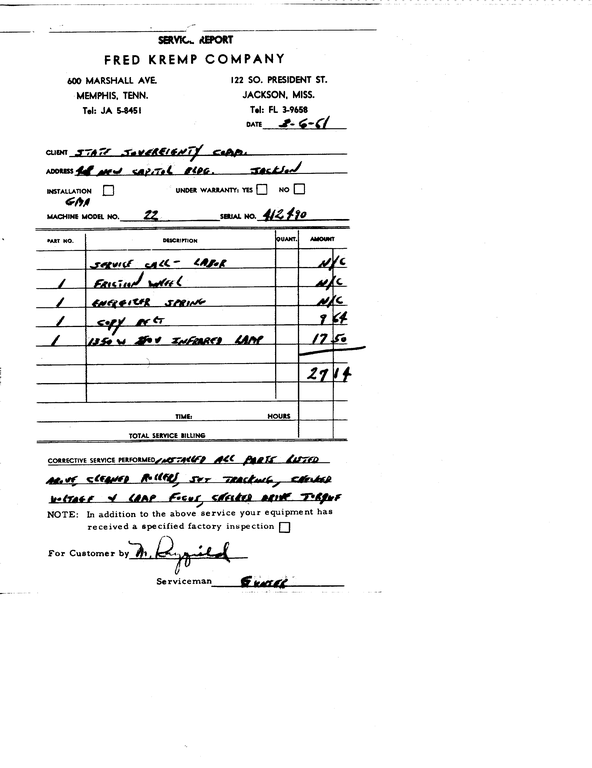 SERVICE REPORT
FRED KREMP COMPANY
600 MARSHALL AVE. 122 SO. PRESIDENT ST.
MEMPHIS, TENN. JACKSON, MISS.
Tel: JA 5-8451 Tel: FL 3-9658
DATE 3-6-61
CLIENT STATE SOVEREIGNTY COMM.
ADDRESS NEW CAPITOL BLDG. JACKSON
INSTALLATION UNDER WARRANTY: YES NO
MACHINE MODEL NO. 22 SERIAL NO. 412490
PART NO. DESCRIPTION QUANT. AMOUNT
SERVICE CALL - LABOR N/C
1 FRICTION WHEEL N/C
1 ENERGIZER SPRING N/C
1 COPY 9 64
1 1350 W INFRARED LAMP 17 50
27 14
TIME: HOURS
TOTAL SERVICE BILLING
CORRECTIVE SERVICE PERFORMED INSTALLED ALL PARTS LISTED
ABOVE CLEANED ROLLERS, SET TRACKING, CHECKED
VOLTAGE & LAMP FOCUS, CHECKED DRIVE TORQUE
NOTE: In addition to the above service your equipment has
received a specified factory inspection
For Customer by
Serviceman GUNTER